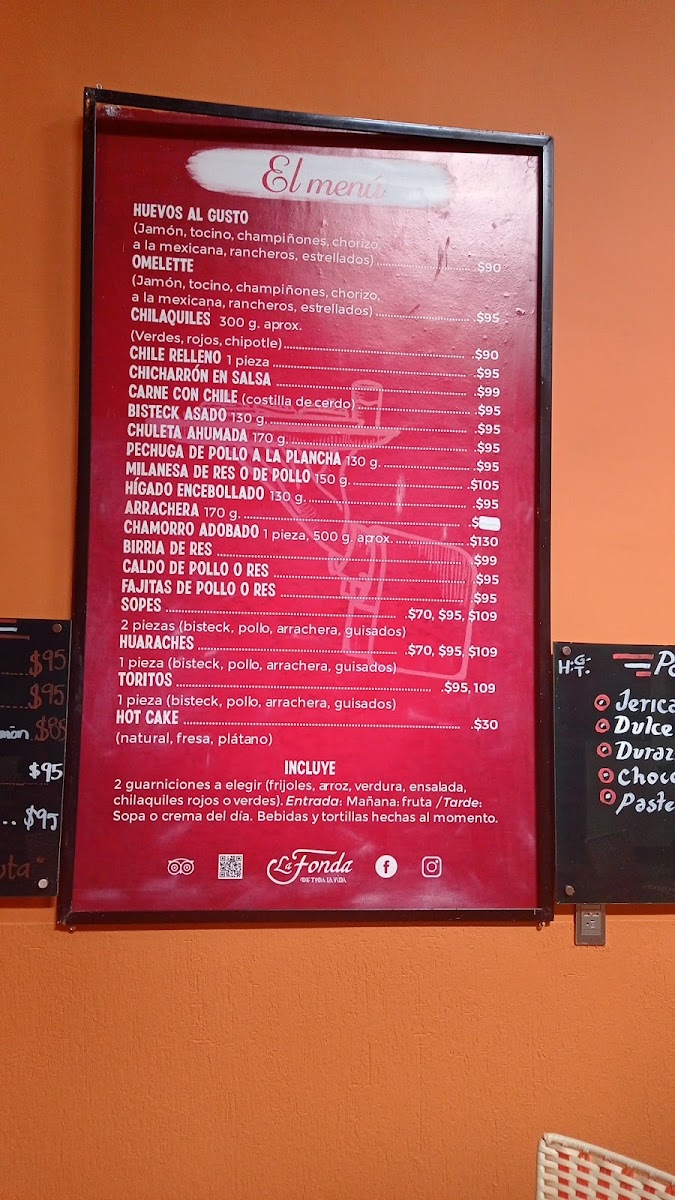 El menú
HUEVOS AL GUSTO
(Jamón, tocino, champiñones, chorizo,
a la mexicana, rancheros, estrellados) $90
OMELETTE
(Jamón, tocino, champiñones, chorizo,
a la mexicana, rancheros, estrellados) $95
CHILAQUILES 300 g. aprox.
(Verdes, rojos, chipotle) $90
CHILE RELLENO 1 pieza $95
CHICHARRÓN EN SALSA $99
CARNE CON CHILE (costilla de cerdo) $95
BISTECK ASADO 130 g. $95
CHULETA AHUMADA 170 g. $95
PECHUGA DE POLLO A LA PLANCHA 130 g. $95
MILANESA DE RES O DE POLLO 150 g. $105
HÍGADO ENCEBOLLADO 130 g. $95
ARRACHERA 170 g. $
CHAMORRO ADOBADO 1 pieza, 500 g. aprox. $130
BIRRIA DE RES $99
CALDO DE POLLO O RES $95
FAJITAS DE POLLO O RES $95
SOPES $70, $95, $109
2 piezas (bisteck, pollo, arrachera, guisados)
HUARACHES $70, $95, $109
1 pieza (bisteck, pollo, arrachera, guisados)
TORITOS $95, 109
1 pieza (bisteck, pollo, arrachera, guisados)
HOT CAKE $30
(natural, fresa, plátano)
INCLUYE
2 guarniciones a elegir (frijoles, arroz, verdura, ensalada,
chilaquiles rojos o verdes). Entrada: Mañana: fruta / Tarde:
Sopa o crema del día. Bebidas y tortillas hechas al momento.
La Fonda
DE TODA LA VIDA
$95
$95
$95
... $95
H.G.T.
Dulce
Choco
Paste